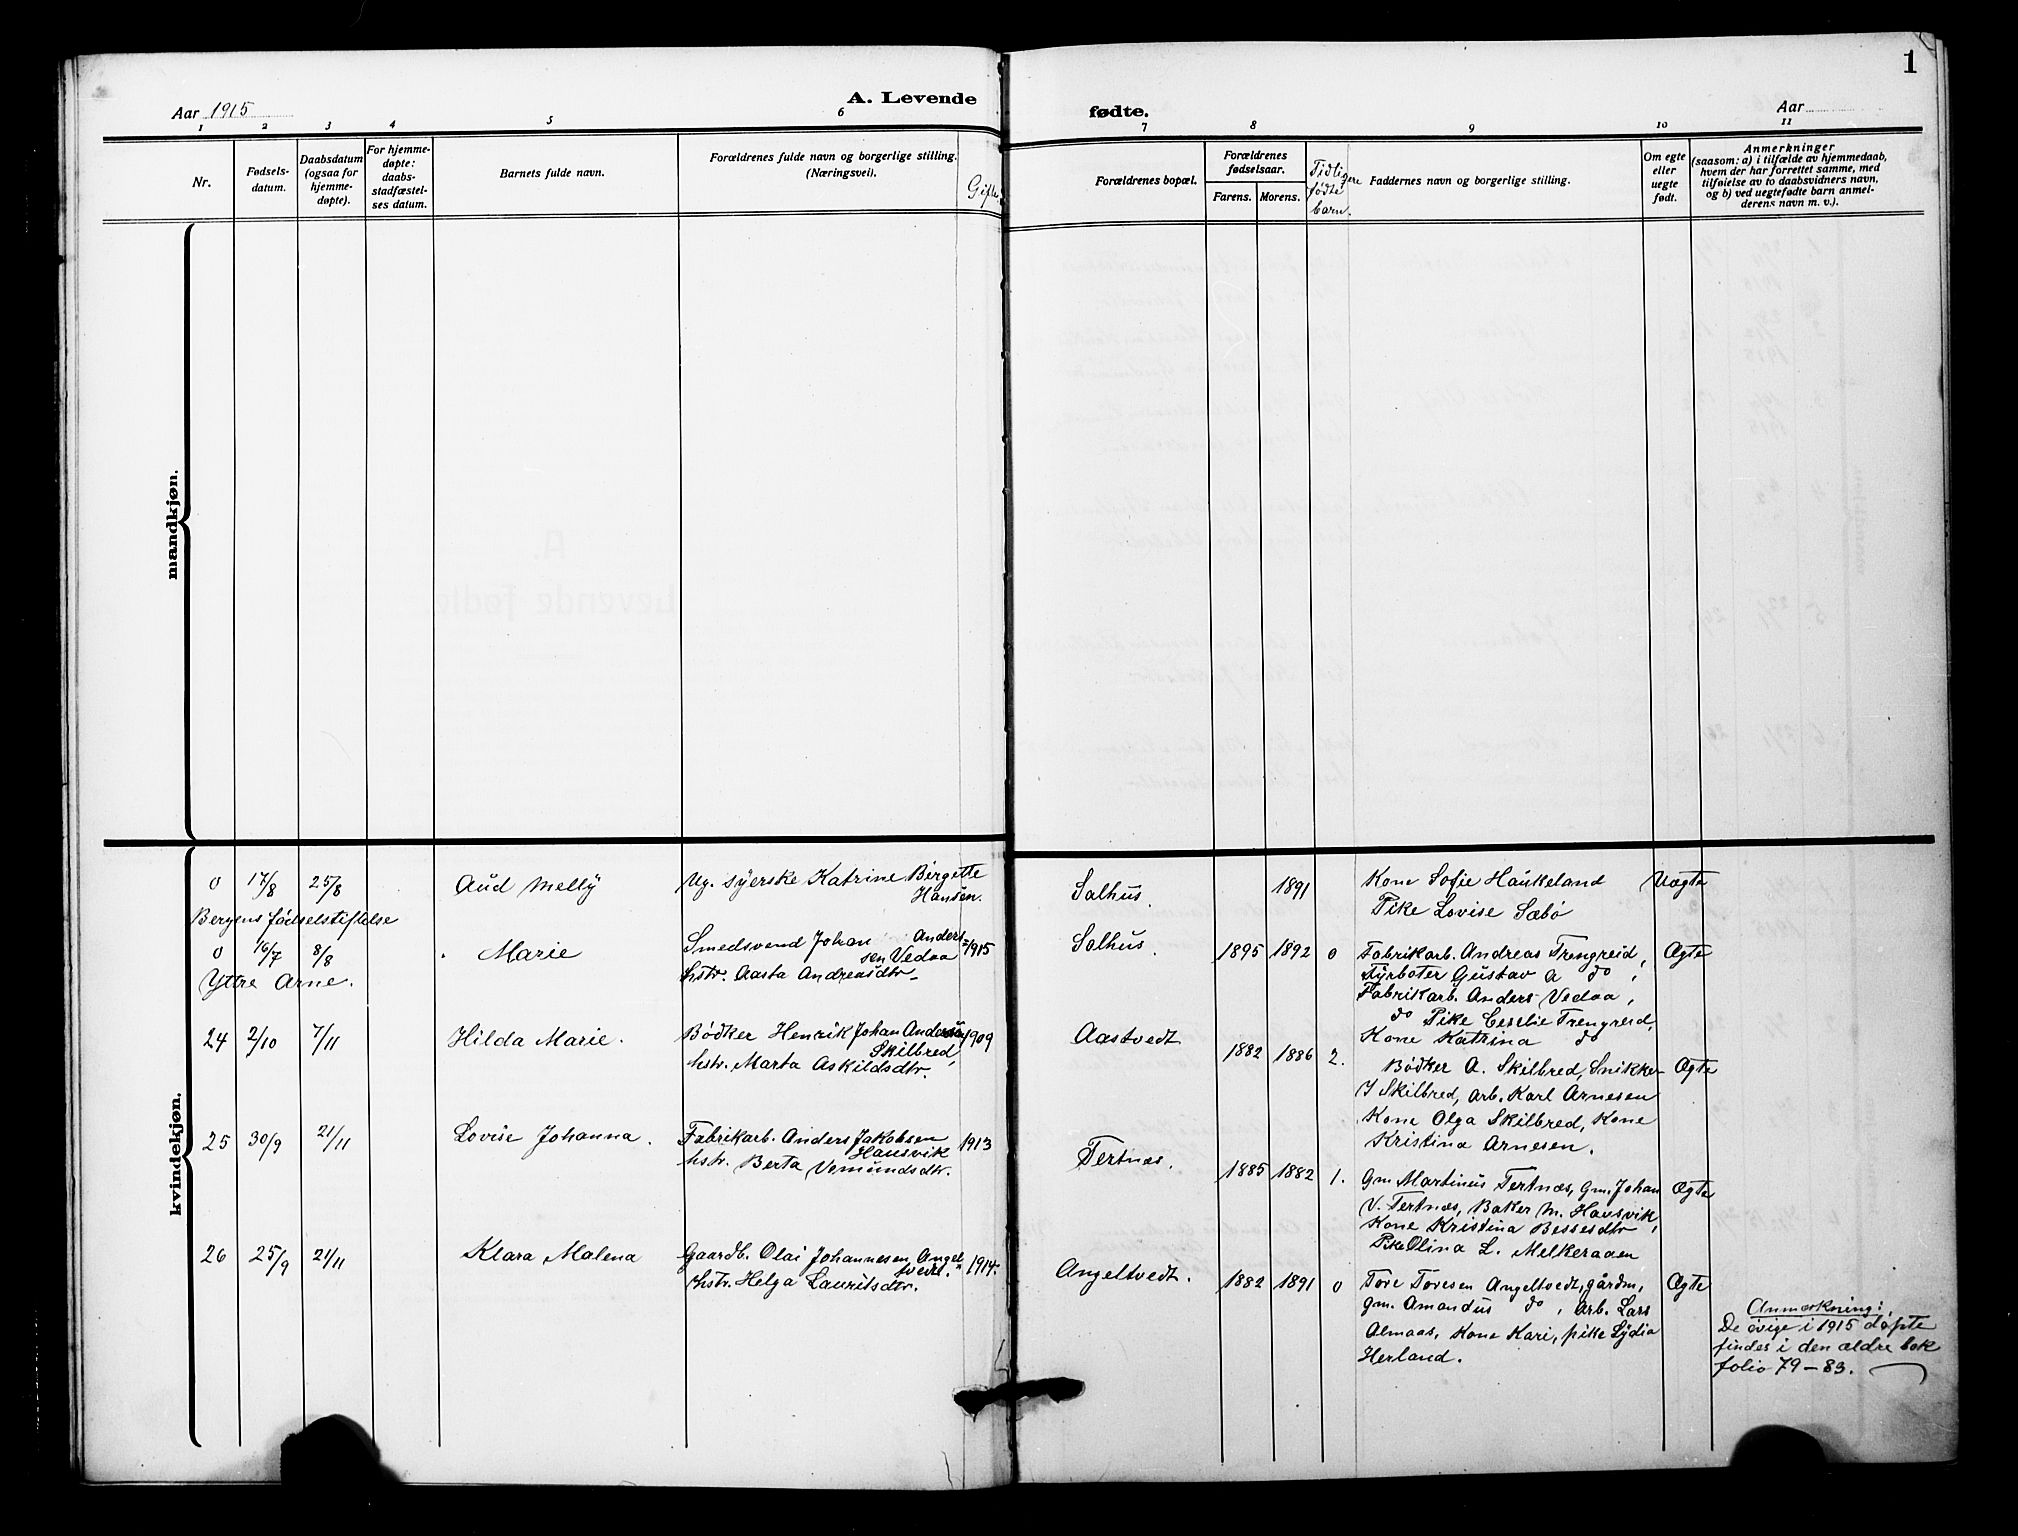 1
Aar 1915
A. Levende
fødte.
Aar
1 2 3 4 5 6 7 8 9 10 11
Nr.
Fødsels-
datum.
Daabsdatum
(ogsaa for
hjemme-
døpte).
For hjemme-
døpte:
daabs-
stadfæstel-
ses datum.
Barnets fulde navn.
Forældrenes fulde navn og borgerlige stilling.
(Næringsvei).
Gifte.
Forældrenes bopæl.
Forældrenes
fødselsaar.
Farens. Morens.
Tidligere
fødte
barn.
Faddernes navn og borgerlige stilling.
Om egte
eller
uegte
født.
Anmerkninger
(saasom: a) i tilfælde av hjemmedaab,
hvem der har forrettet samme, med
tilføielse av to daabsvidners navn,
og b) ved uegtefødte barn anmel-
derens navn m. v.).
mandkjøn.
kvindekjøn.
0 17/8 25/8 Aud Melly
Ug. syerske Katrine Birgette
Hansen.
Salhus. 1891
Kone Sofie Haukeland
Pike Lovise Sæbö
Uægte
Bergens födselstiftelse
0 16/7 8/8 Marie
Smedsvend Johan Anders-
sen Vedaa
hstr. Aasta Andreasdtr.
1915
Salhus. 1895 1892 0
Fabrikarb. Andreas Trengreid,
Fyrböter Gustav A do,
Fabrikarb. Anders Vedaa,
do Pike Ceselie Trengreid,
Kone Katrina do
Ægte
Ytre Arne.
24 2/10 7/11 Hilda Marie.
Bödker Henrik Johan Andersen
Skilbred,
hstr. Marta Askildsdtr.
1909
Aastvedt 1882 1886 2.
Bödker A. Skilbred, Snikker
J Skilbred, arb. Karl Arnesen
Kone Olga Skilbred, Kone
Kristina Arnesen.
Ægte
25 30/9 21/11 Lovise Johanna.
Fabrikarb. Anders Jakobsen
Hausvik
hstr. Berta Vemundsdtr.
1913
Tertnæs. 1885 1882 1.
Gm Martinus Tertnæs, Gm. Johan
V. Tertnæs, Baker M. Hausvik,
Kone Kristina Bessesdtr,
Pike Olina L. Melkeraaen
Ægte
26 25/9 21/11 Klara Malena
Gaardb. Olai Johannesen Angel-
tvedt.
hstr. Helga Lauritsdtr.
1914.
Angeltvedt. 1882 1891 0
Tore Toresen Angeltvedt, gårdm,
gm. Amandus do, arb. Lars
Almaas, Kone Kari, pike Lydia
Herland.
Ægte
Anmærkning:
De övige i 1915 döpte
findes i den ældre bok
folio 79 – 83.